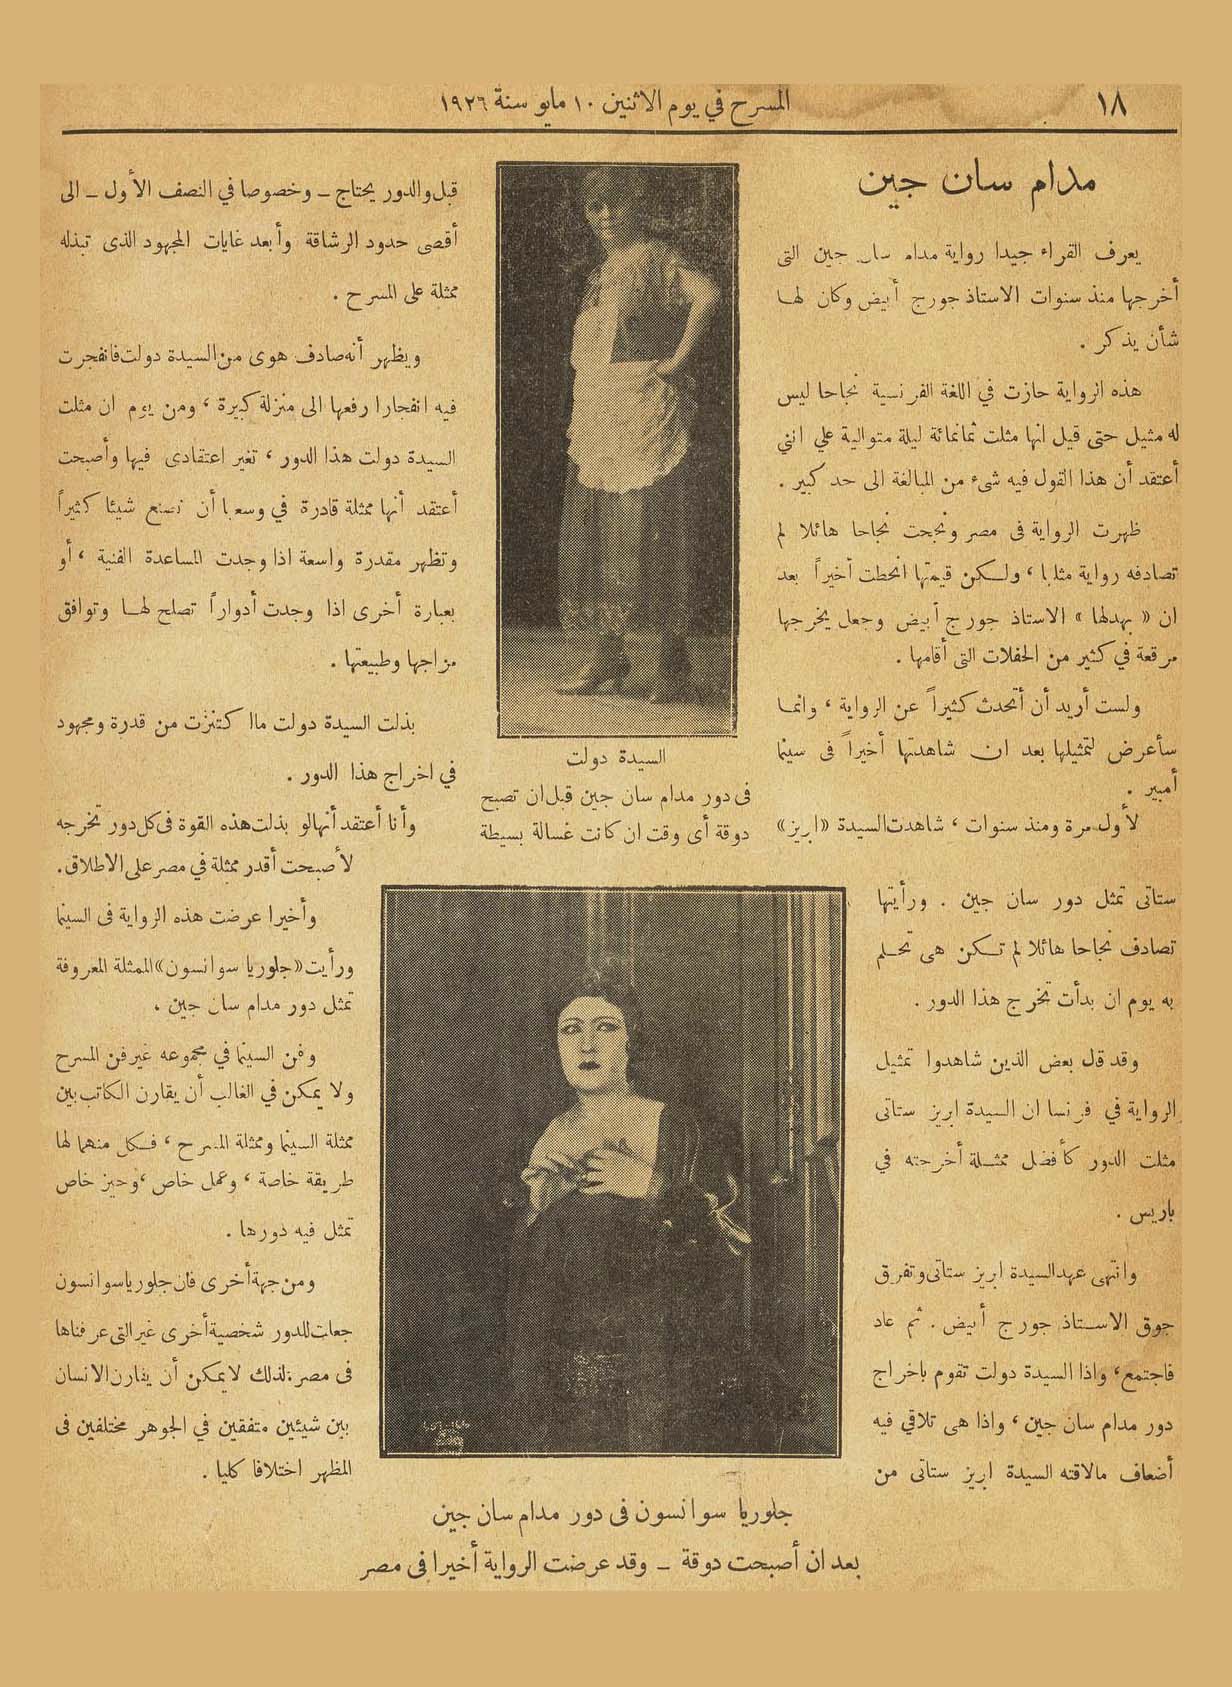 ١٨
المسرح في يوم الاثنين ١٠ مايو سنة ١٩٢٦
مدام سان جين
يعرف القراء جيدا رواية مدام سان جين التى
أخرجها منذ سنوات الاستاذ جورج أبيض وكان لها
شأن يذكر .
هذه الرواية حازت في اللغة الفرنسية نجاحا ليس
له مثيل حتى قيل انها مثلت ثمانمائة ليلة متوالية على انني
أعتقد أن هذا القول فيه شىء من المبالغة الى حد كبير .
ظهرت الرواية فى مصر ونجحت نجاحا هائلا لم
تصادفه رواية مثلها ، ولكن قيمتها انحطت أخيراً بعد
ان « بهدلها » الاستاذ جورج أبيض وجعل يخرجها
مرقعة في كثير من الحفلات التى أقامها .
ولست أريد أن أتحدث كثيراً عن الرواية ، وانما
سأعرض لتمثيلها بعد ان شاهدتها أخيراً فى سينما
أمبير .
لأول مرة ومنذ سنوات ، شاهدت السيدة «ابريز»
ستاتى تمثل دور سان جين . ورأيتها
تصادف نجاحا هائلا لم تكن هى تحلم
به يوم ان بدأت تخرج هذا الدور .
وقد قال بعض الذين شاهدوا تمثيل
الرواية في فرنسا ان السيدة ابريز ستاتى
مثلت الدور كأفضل ممثلة أخرجته في
باريس .
وانتهى عهد السيدة ابريز ستاتى وتفرق
جوق الاستاذ جورج أبيض . ثم عاد
فاجتمع ، واذا السيدة دولت تقوم باخراج
دور مدام سان جين ، واذا هى تلاقي فيه
أضعاف مالاقته السيدة ابريز ستاتى من
السيدة دولت
فى دور مدام سان جين قبل ان تصبح
دوقة أى وقت ان كانت غسالة بسيطة
جلوريا سوانسون فى دور مدام سان جين
بعد ان أصبحت دوقة – وقد عرضت الرواية أخيرا فى مصر
قبل والدور يحتاج – وخصوصا في النصف الأول – الى
أقصى حدود الرشاقة وأبعد غايات المجهود الذى تبذله
ممثلة على المسرح .
ويظهر أنه صادف هوى من السيدة دولت فانفجرت
فيه انفجارا رفعها الى منزلة كبيرة ، ومن يوم ان مثلت
السيدة دولت هذا الدور ، تغير اعتقادى فيها وأصبحت
أعتقد أنها ممثلة قادرة في وسعها أن تصنع شيئا كثيراً
وتظهر مقدرة واسعة اذا وجدت المساعدة الفنية ، أو
بعبارة أخرى اذا وجدت أدواراً تصلح لها وتوافق
مزاجها وطبيعتها .
بذلت السيدة دولت ماا كتنزت من قدرة ومجهود
في اخراج هذا الدور .
وأنا أعتقد أنها لو بذلت هذه القوة فى كل دور تخرجه
لأصبحت أقدر ممثلة في مصر على الاطلاق .
وأخيرا عرضت هذه الرواية فى السينما
ورأيت «جلوريا سوانسون» الممثلة المعروفة
تمثل دور مدام سان جين .
وفن السينما في مجموعه غير فن المسرح
ولا يمكن في الغالب أن يقارن الكاتب بين
ممثلة السينما وممثلة المسرح ، فكل منهما لها
طريقة خاصة ، وعمل خاص ، وحيز خاص
تمثل فيه دورها .
ومن جهة أخرى فان جلوريا سوانسون
جعلت للدور شخصية أخرى غير التى عرفناها
فى مصر ؛ لذلك لا يمكن أن يقارن الانسان
بين شيئين متفقين في الجوهر مختلفين فى
المظهر اختلافا كليا .